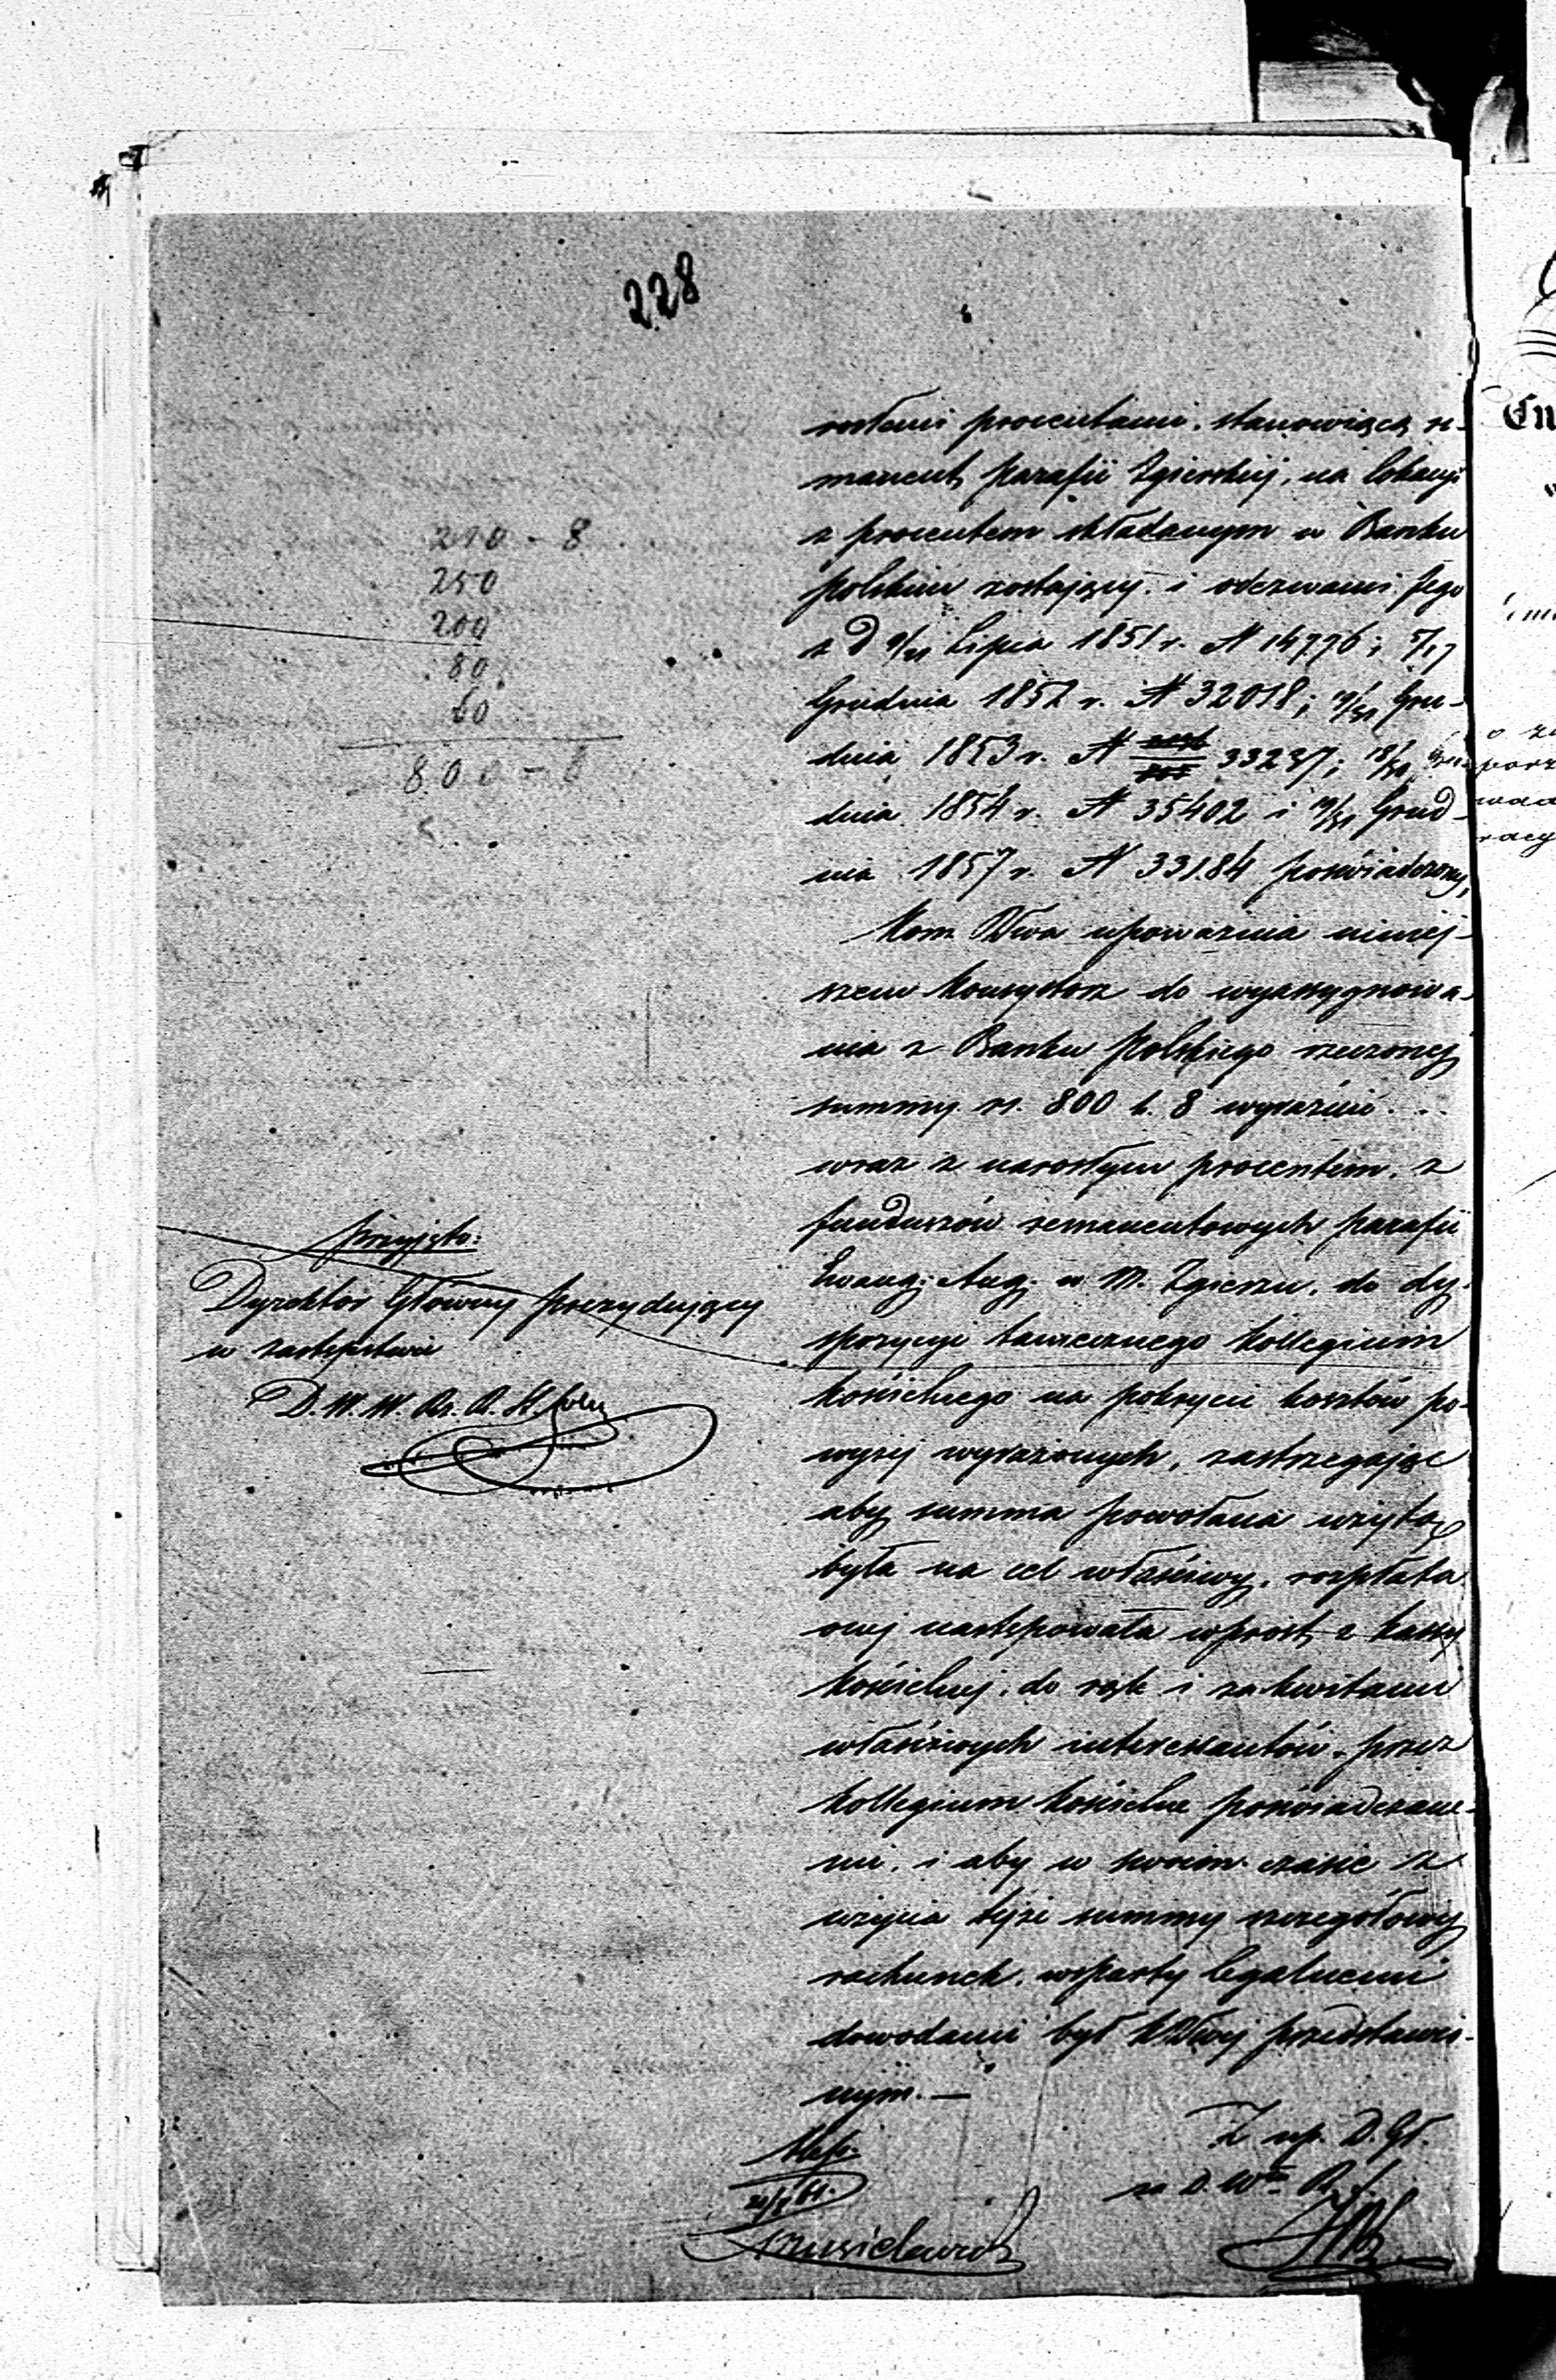 228
rosłemi procentami, stanowiącą re-
manent parafii Zgierskiej, na lokacyi
z procentem składanym w Banku
polskim zostającej i odezwami Jego
z d 9/21 Lipca 1851 r. N 14776; 5/17
Grudnia 1852 r. N 32018; 19/31 Gru-
dnia 1853 r. N 33237; 18/30 Gru-
dnia 1854 r. N 35402 i 19/31 Grud-
nia 1857 r. N 33184 poświadczonej,
Kom Rząwa upoważnia niniej-
szem Konsystorz do wyassygnowa-
nia z Banku Polskiego rzeczonej
summy rs. 800 k. 8 wyraźnie
wraz z narosłym procentem, z
funduszów remanentowych parafii
Ewang: Aug: w M. Zgierzu, do dy-
spozycyi tamecznego Kollegium
Kościelnego na pokrycie kosztów po-
wyżej wyrażonych, zastrzegając
aby summa powołana użytą
była na cel właściwy, rozpłata
onej następowała wprost z Kassy
Kościelnej, do rąk i za kwitami
właściwych interessantów, przez
Kollegium Kościelne poświadczane-
mi, i aby w swoim czasie z
użycia tejże summy szczegółowy
rachunek, wsparty legalnemi
dowodami był KRząwej przedstawio-
nym. —
Z up. D. Gł.
za D. Wu R. S.
210 - 8
250
200
80
60
800 - 8
przyjęto:
Dyrektor Główny Prezydujący
w zastępstwie
D. W. W. Rz. R. St.